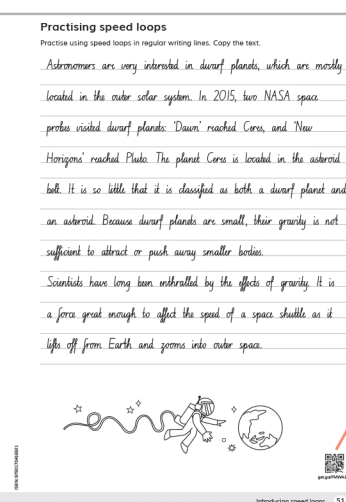 Practising speed loops
Practise using speed loops in regular writing lines. Copy the text.
Astronomers are very interested in dwarf planets, which are mostly
located in the outer solar system. In 2015, two NASA space
probes visited dwarf planets: 'Dawn' reached Ceres, and 'New
Horizons' reached Pluto. The planet Ceres is located in the asteroid
belt. It is so little that it is classified as both a dwarf planet and
an asteroid. Because dwarf planets are small, their gravity is not
sufficient to attract or push away smaller bodies.
Scientists have long been enthralled by the effects of gravity. It is
a force great enough to affect the speed of a space shuttle as it
lifts off from Earth and zooms into outer space.
Introducing speed loops 51